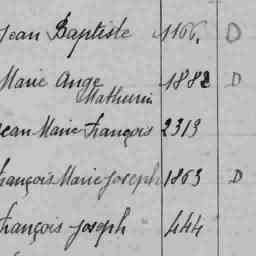 Jean Baptiste 1166. D
Marie Ange 1882 D
Mathurin
Jean Marie François 2313
François Marie Joseph 1863 D
François Joseph 444